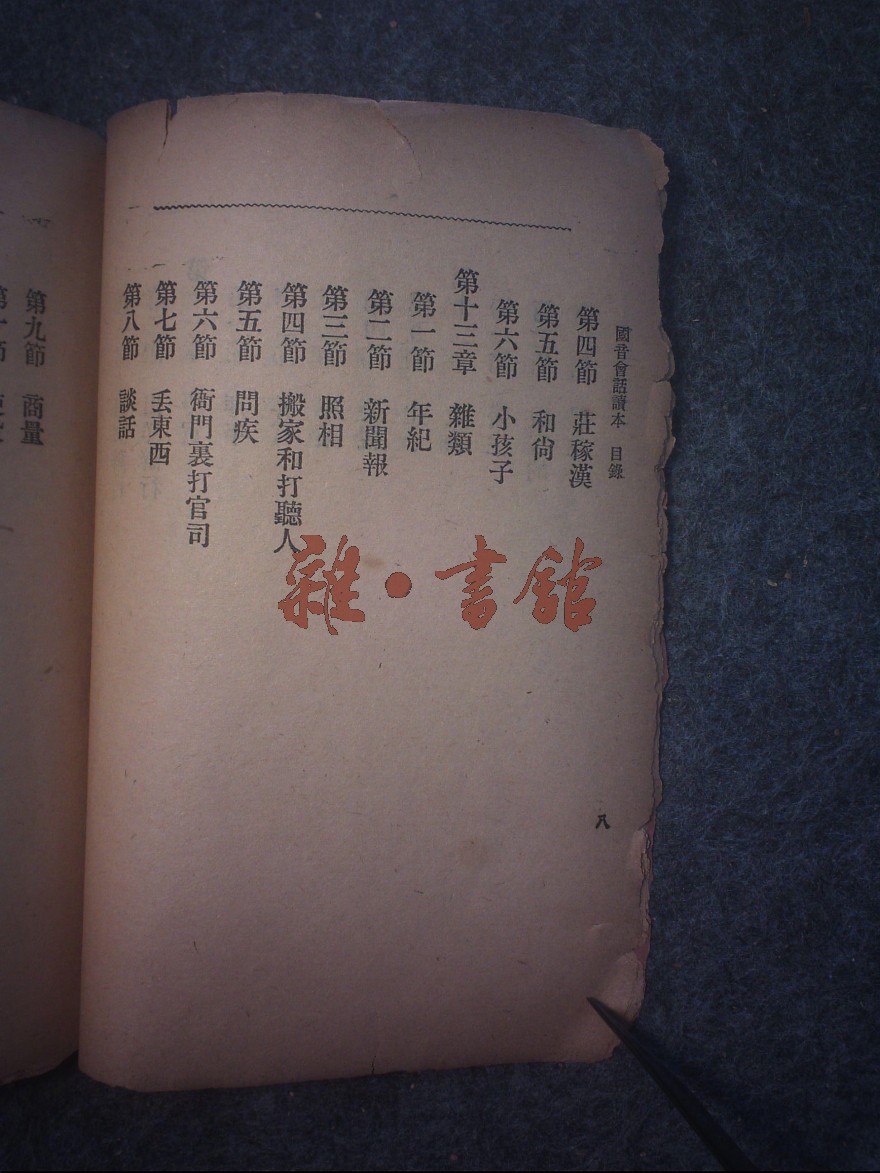 國音會話讀本 目錄
第四節 莊稼漢
第五節 和尙
第六節 小孩子
第十三章 雜類
第一節 年紀
第二節 新聞報
第三節 照相
第四節 搬家和打聽人
第五節 問疾
第六節 衙門裏打官司
第七節 丢東西
第八節 談話
八
第九節 商量
雜·書館